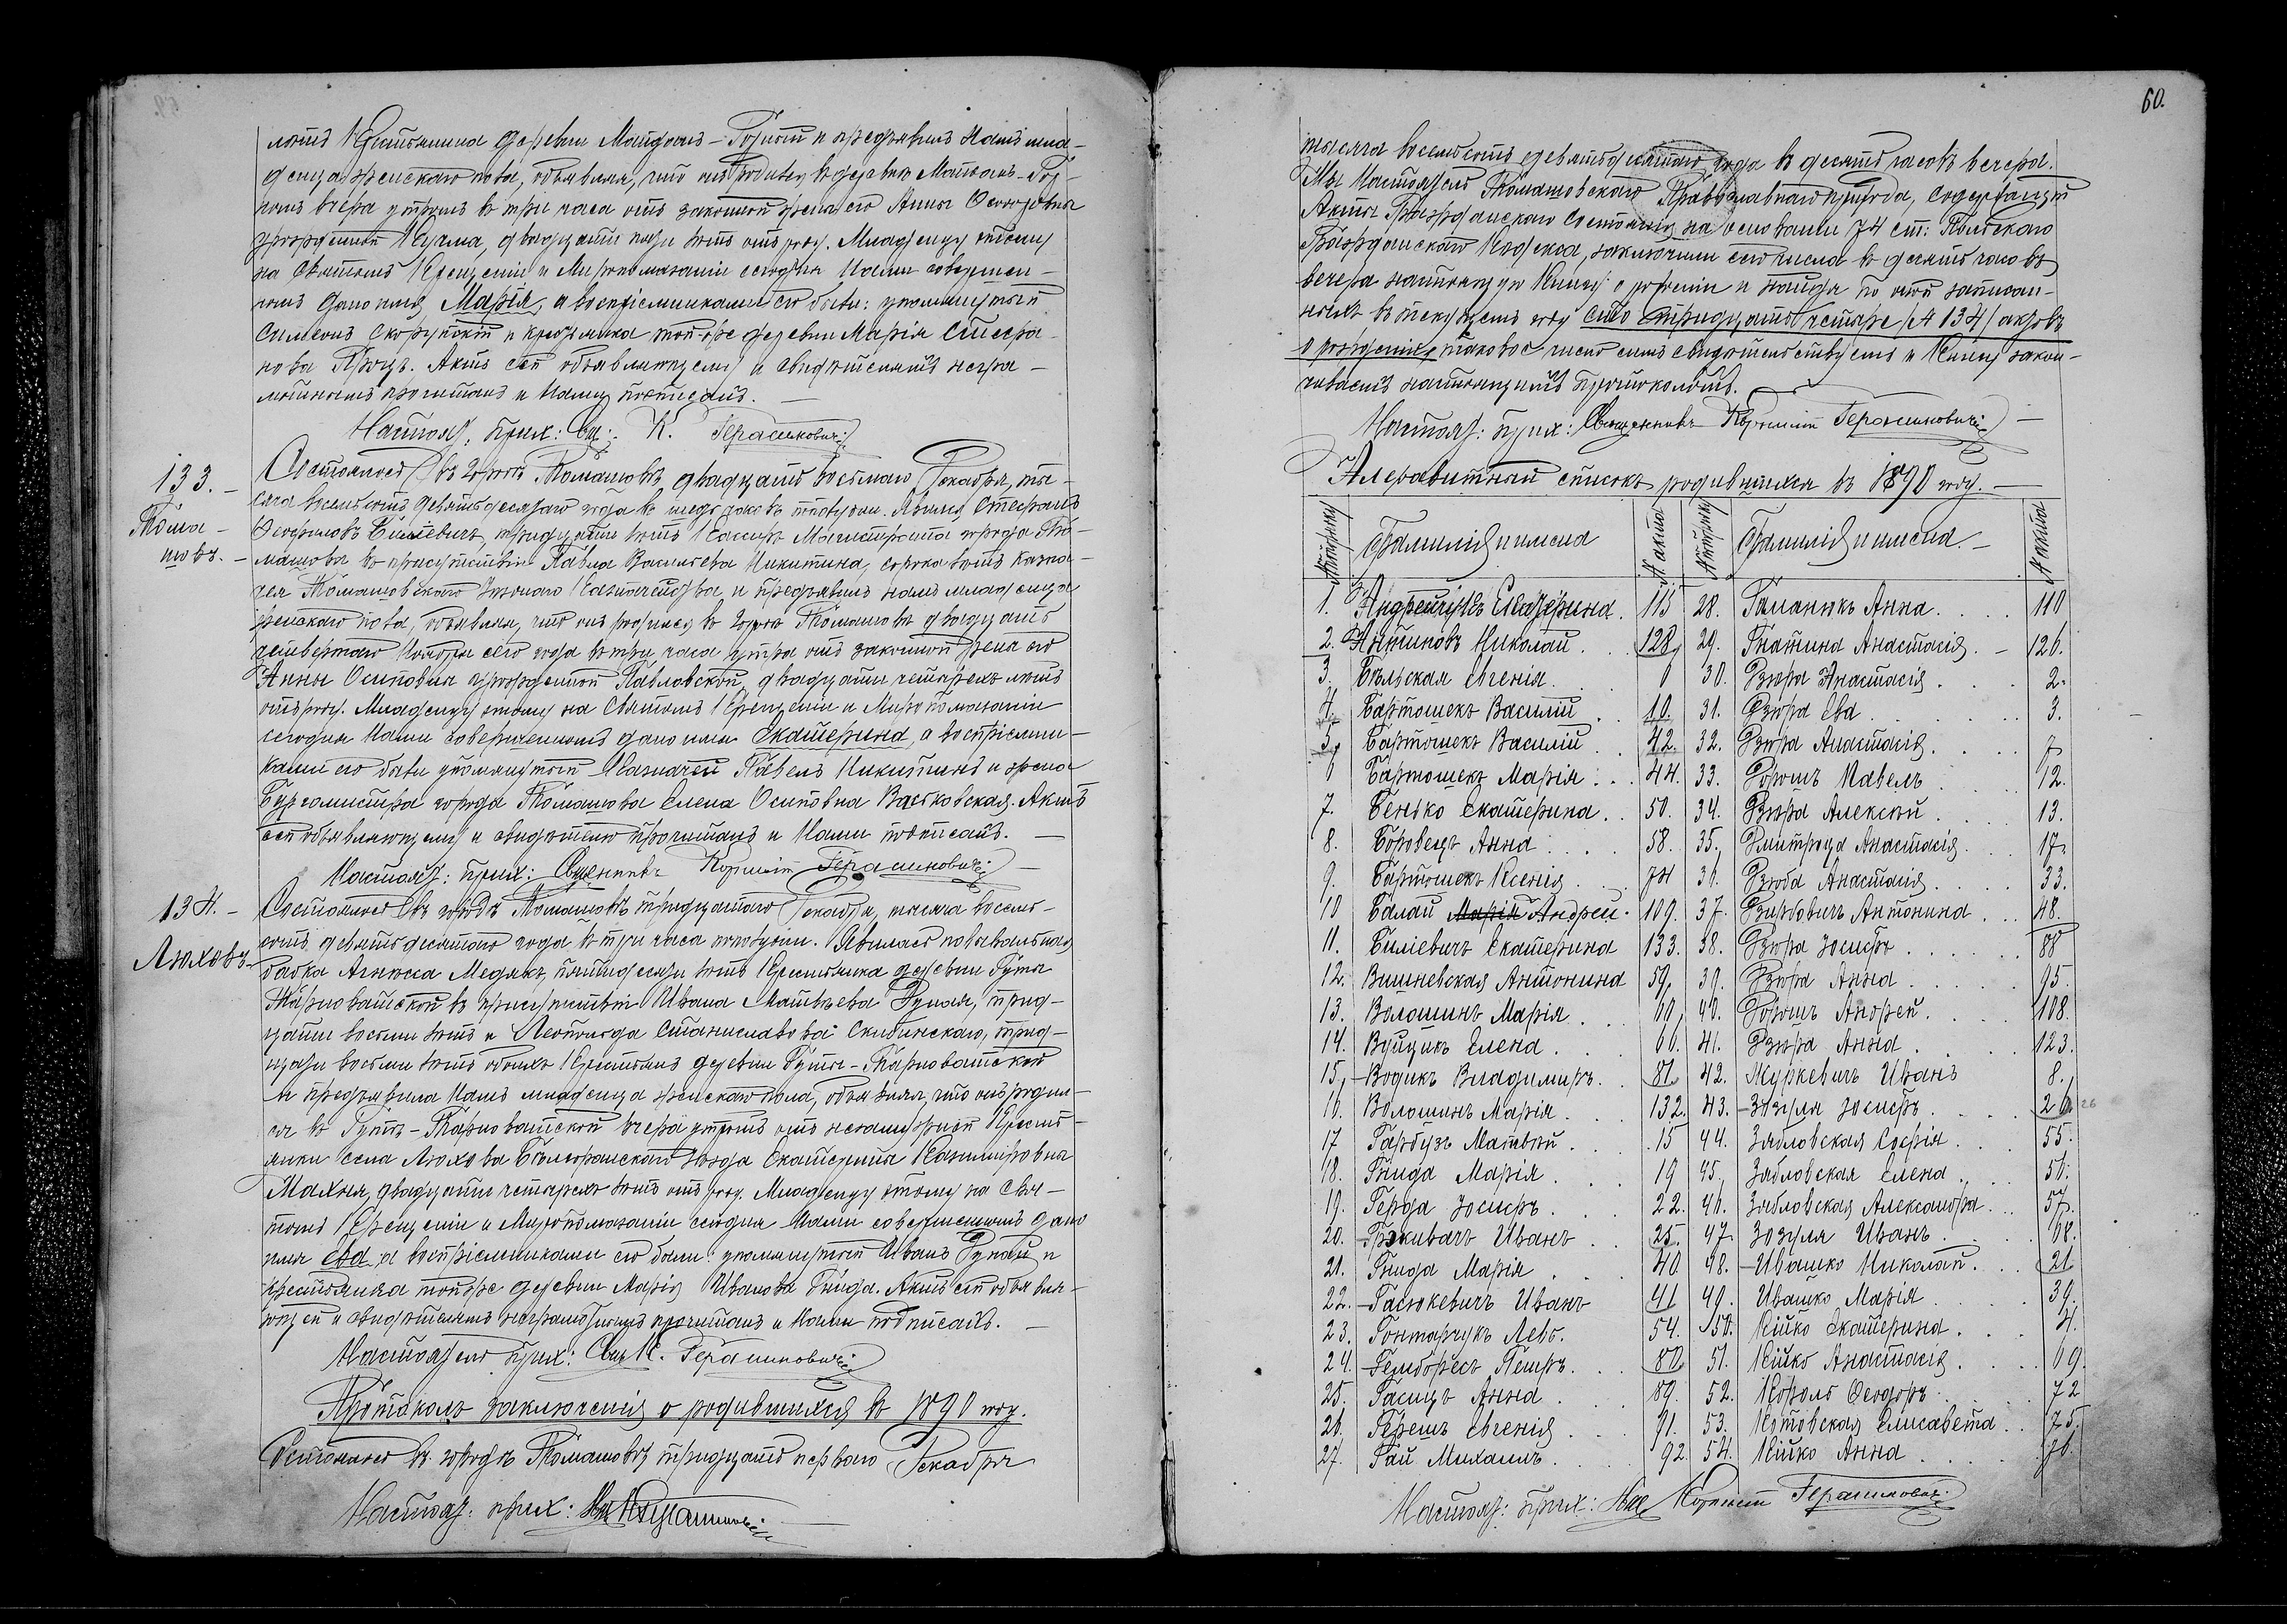 лѣтъ Крестьянина деревни Майданъ-Горный и предъявилъ Намъ мла-
денца женскаго пола, объявляя, что онъ родился въ деревнѣ Майданъ-Гор-
номъ вчера утромъ въ три часа отъ законной жены его Анны Осиповны
урожденной Кузма, двадцати пяти лѣтъ отъ роду. Младенцу этому
на Святомъ Крещеніи и Миропомазаніи сегодня Нами совершен-
номъ дано имя Марія, а воспріемниками его были: упомянутый
Симеонъ и крестьянка той же деревни Марія Стефа-
нова Прощъ. Актъ сей объявляющему и свидѣтелямъ негра-
мотнымъ прочитанъ и Нами подписанъ. —
Настоят. прих: Свщ: К. Герасимовичъ
133. —
Тома-
шовъ. —
Состоялось въ городѣ Томашовѣ двадцать восьмаго Декабря, ты-
сяча восемьсотъ девяностаго года въ шесть часовъ пополудни. Явился Стефанъ
Ѳеофиловъ Билевичъ, тридцати лѣтъ Кассиръ Магистрата города То-
машова въ присутствіи Павла Васильева Никитина, сорока лѣтъ Казна-
чея Томашовскаго Уѣзднаго Казначейства и предъявилъ намъ младенца
женскаго пола, объявляя, что онъ родился въ городѣ Томашовѣ двадцать
четвертаго Ноября сего года въ три часа утра отъ законной жены его
Анны Осиповны урожденной Павловской, двадцати четырехъ лѣтъ
отъ роду. Младенцу этому на Святомъ Крещеніи и Миропомазаніи
сегодня Нами совершенномъ дано имя Екатерина, а воспріемни-
ками его были упомянутый Казначей Павелъ Никитинъ и жена
Бургомистра города Томашова Елена Осиповна Васьковская. Актъ
сей объявляющему и свидѣтелю прочитанъ и Нами подписанъ. —
Настоят: прих: Священникъ Корнилій Герасимовичъ —
134. —
Люховъ. —
Состоялось въ городѣ Томашовѣ тридцатаго Декабря, тысяча восемь-
сотъ девяностаго года въ три часа пополудни. Явилась повивальная
бабка Агнюска Медякъ, пятидесяти лѣтъ Крестьянка деревни Гуты
Тарноватской въ присутствіи Ивана Матвѣева Дуная, трид-
цати восьми лѣтъ и Леопольда Станиславова Скибинскаго, трид-
цати восьми лѣтъ обоихъ Крестьянъ деревни Гуты-Тарноватской
и предъявила Намъ младенца женскаго пола, объявляя, что онъ родил-
ся въ Гутѣ-Тарноватской вчера утромъ отъ незамужней Крестъ-
янки села Люхова Бѣлгорайскаго Уѣзда Екатерины Казиміровны
Махня, двадцати четырехъ лѣтъ отъ роду. Младенцу этому на Свя-
томъ Крещеніи и Миропомазаніи сегодня Нами совершенномъ дано
имя Ева, а воспріемниками его были: упомянутый Иванъ Дунай и
крестьянка той же деревни Марія Иванова Гнида. Актъ сей объявля-
ющей и свидѣтелямъ неграмотнымъ прочитанъ и Нами подписанъ. —
Настоятель прих: Свщ. К. Герасимовичъ
Протоколъ заключенія о родившихся въ 1890 году.
Состоялось въ городѣ Томашовѣ тридцать перваго Декабря
Настоят: прих: Свщ. К. Герасимовичъ —
60.
тысяча восемьсотъ девяностаго года въ десять часовъ вечера.
Мы Настоятель Томашовскаго Православнаго прихода, Содержащій
Акты Гражданскаго Состоянія на основаніи 74 ст: Польскаго
Гражданскаго Кодекса, заключили сего числа въ десять часовъ
вечера настоящую Книгу о рожденіи и найдя по оной записан-
ныхъ въ текущемъ году сто тридцать четыре /№ 134/ актовъ
о рожденіи, таковое число симъ свидѣтельствуемъ и Книгу закан-
чиваемъ настоящимъ протоколомъ.
Настоят: прих: Священникъ Корнилій Герасимовичъ —
Алфавитный списокъ родившихся въ 1890 году. —
Фамилія и имена № акта Фамилія и имена. — № акта
1. Андрейчукъ Екатерина. 115 28. Гаманюкъ Анна. 110
2. Антиновъ Николай. 128 29. Гнатина Анастасія. — 126.
3. Бѣльская Евгенія. 6 30. Дзюра Анастасія. 2.
4. Бартошекъ Василій. 10 31. Дзюра Ева. 3.
5. Бартошекъ Василій. 42. 32. Дзюра Анастасія. 7
6 Бартошекъ Марія. 44. 33. Дорошъ Павелъ. 12.
7. Бенько Екатерина. 50. 34. Дзюра Алексѣй. 13.
8. Боровецъ Анна. 58. 35. Дмитроца Анастасія. 17.
9. Бартошекъ Ксенія. 74 36. Дзюба Анастасія. 33.
10 Балай Марія Андрей. 109. 37. Антонина. 48.
11. Билевичъ Екатерина 133. 38. Дзюра Іосифъ. 88
12. Вишневская Антонина 59. 39. Дзюра Анна. 95.
13. Волошинъ Марія. 60. 40. Дорошъ Андрей. 108.
14. Вуйцикъ Елена. 66. 41. Дзюра Анна. 123.
15. Водикъ Владимиръ. 81. 42. Журкевичъ Иванъ 8.
16. Волошинъ Марія. 132. 43. Зозуля Іосифъ. 26 26
17 Гарбузъ Матвѣй. 15 44. Зябловская Софія. 55.
18. Гнида Марія. 19 45. Зябловская Елена. 56.
19. Герда Іосифъ. 22. 46. Зябловская Александра. 57.
20. Иванъ. 25. 47. Зозуля Иванъ. 68.
21. Гнида Марія. 40 48. Ивашко Николай. 21
22. Гасюкевичъ Иванъ 41 49. Ивашко Марія. 39.
23. Гонтарчукъ Левъ. 54. 50. Кійко Екатерина. 4.
24. Петръ. 80 51. Кійко Анастасія. 69.
25. Гасицъ Анна. 89. 52. Король Ѳеодоръ. 72
26. Герешъ Евгенія. 91. 53. Котовская Елисавета. 75.
27. Гай Михаилъ. 92. 54. Кійко Анна. 76.
Настоят: прих: Свщ Корнилій Герасимовичъ